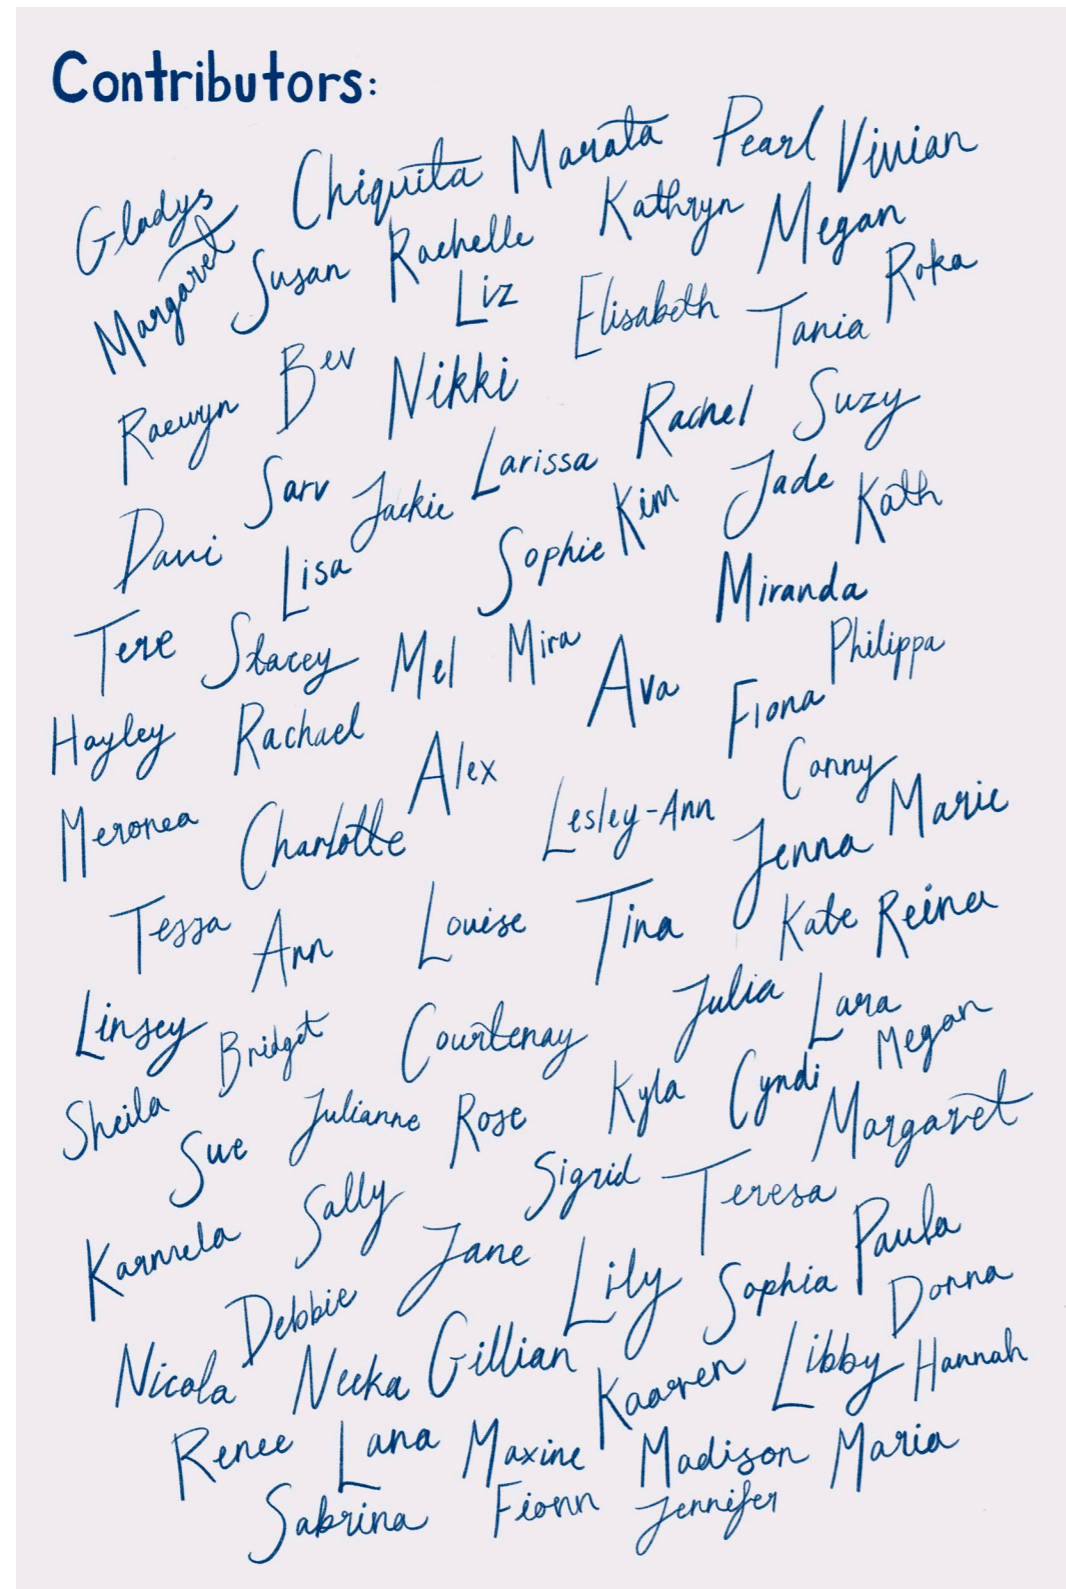 Contributors:
Gladys Chiquita Marata Pearl Vivian
Margaret Susan Rachelle Kathryn Megan
Liz Elisabeth Tania Roka
Raewyn Bev Nikki Rachel Suzy
Sarv Jackie Larissa Kim Jade Kath
Davi Lisa Sophie Miranda
Tere Stacey Mel Mira Ava Philippa
Hayley Rachael Alex Fiona
Meronea Charlotte Lesley-Ann Conny Marie
Jenna
Tessa Ann Louise Tina Kate Reina
Linsey Bridget Courtenay Julia Lara Megan
Sheila Sue Julianne Rose Kyla Cyndi Margaret
Karmela Sally Sigrid Teresa Paula
Debbie Jane Lily Sophia Donna
Nicola Neeka Gillian Kaaren Libby Hannah
Renee Lana Maxine Madison Maria
Sabrina Fionn Jennifer